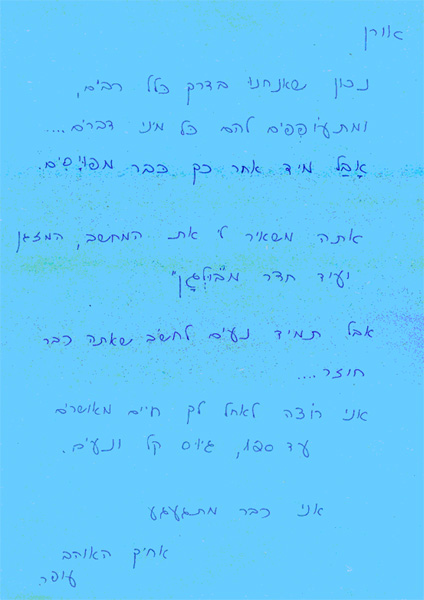 אורן
נכון שאנחנו בדרך כלל רבים,
ומתעופפים להם כל מיני דברים....
אָבָל מיד אחר כך כבר מפוּיָסִים.
אתה משאיר לי את המחשב, המזגן
ועוד חדר מ"בוּלגָן"
אבל תמיד נעים לחשוב שאתה כבר
חוזר....
אני רוצה לאחל לך חיים מאושרים
עד 120, גיוס קל ונעים.
אני כבר מתגעגע
אחיך האוהב
עופר.